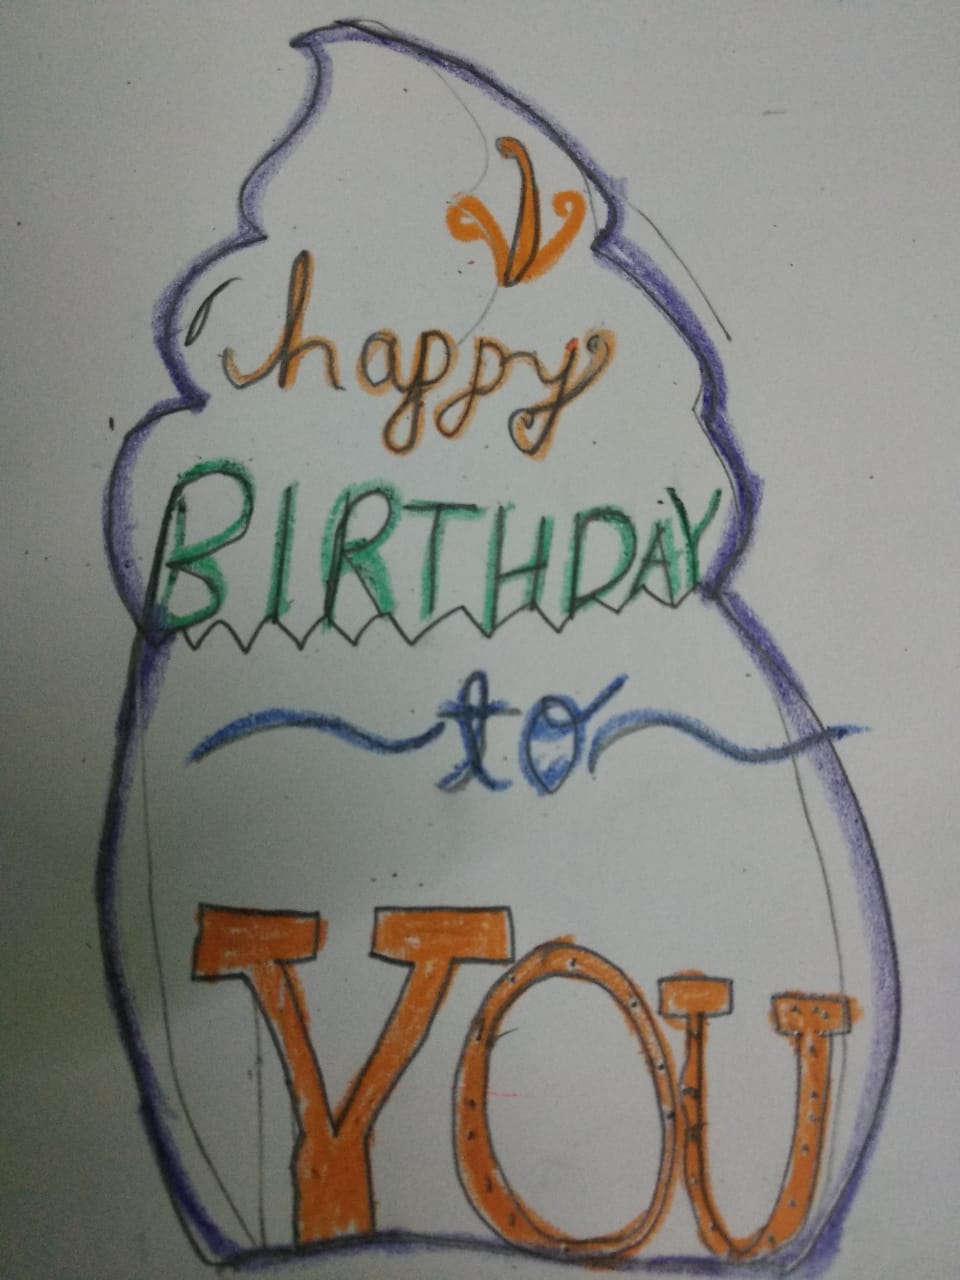 happy
BIRTHDAY
to
YOU